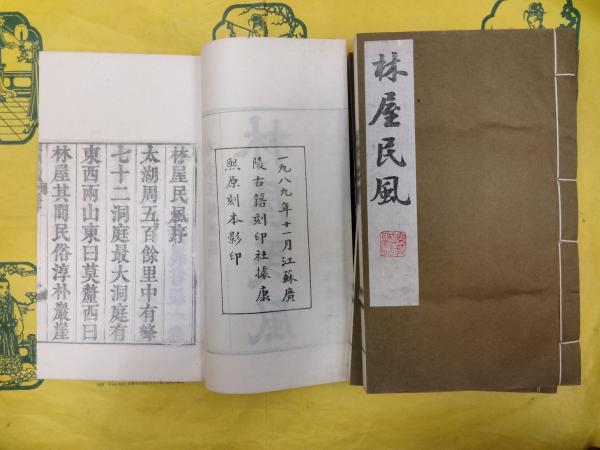 林屋民風
一九八九年十一月江蘇廣
陵古籍刻印社據康
熙原刻本影印
林屋民風序
太湖周五百餘里中有峰
七十二洞庭最大洞庭有
東西兩山東曰莫釐西曰
林屋其間民俗淳朴巖崖